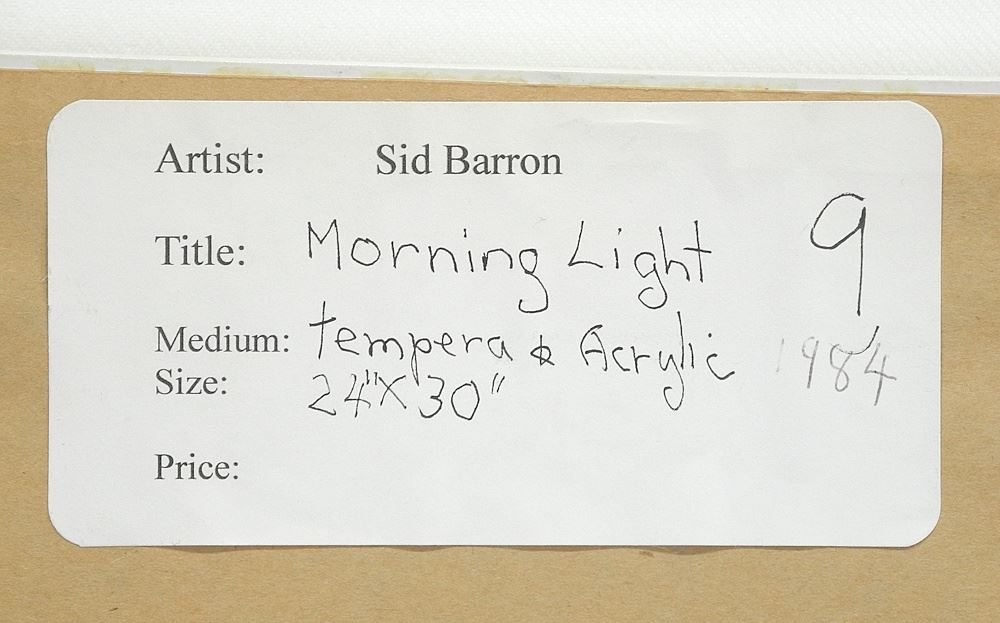 Artist: Sid Barron
Title: Morning Light 9
Medium: tempera & Acrylic 1984
Size: 24"X30"
Price: